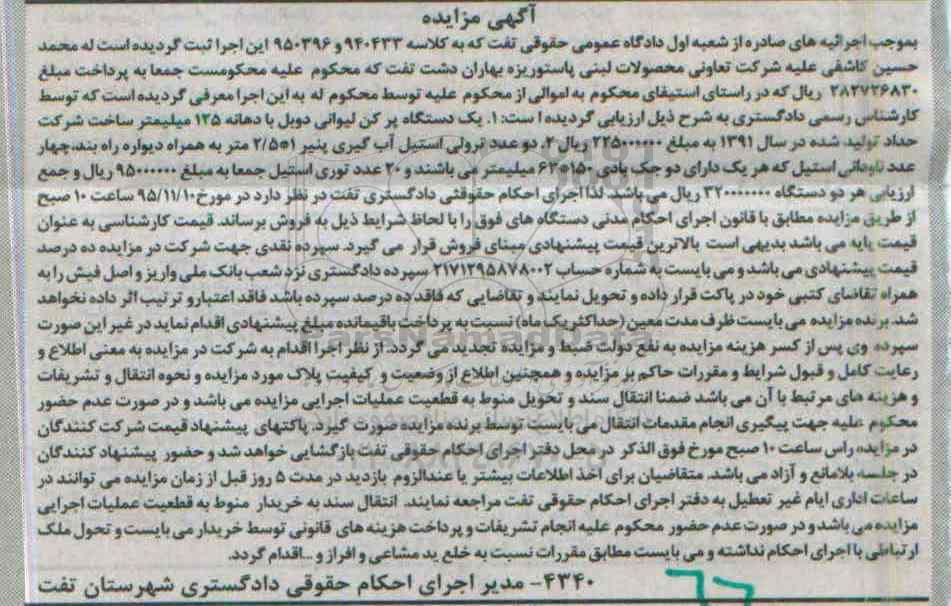 آگهی مزایده
بموجب اجرائیه های صادره از شعبه اول دادگاه عمومی حقوقی تفت که به کلاسه ۹۴۰۴۳۳ و ۹۵۰۳۹۶ این اجرا ثبت گردیده است له محمد
حسین کاشفی علیه شرکت تعاونی محصولات لبنی پاستوریزه بهاران دشت تفت که محکوم علیه محکومست جمعا به پرداخت مبلغ
۲۸۲۷۲۶۸۳۰ ریال که در راستای استیفای محکوم به اموالی از محکوم علیه توسط محکوم له به این اجرا معرفی گردیده است که توسط
کارشناس رسمی دادگستری به شرح ذیل ارزیابی گردیده است: ۱. یک دستگاه پر کن لیوانی دوبل با دهانه ۱۲۵ میلیمتر ساخت شرکت
حداد تولید شده در سال ۱۳۹۱ به مبلغ ۲۲۵۰۰۰۰۰۰ ریال ۲. دو عدد ترولی استیل آب گیری پنیر ۱*۲/۵ متر به همراه دیواره راه بند، چهار
عدد ناودانی استیل که هر یک دارای دو جک بادی ۱۵۰*۶۳ میلیمتر می باشند و ۲۰ عدد توری استیل جمعا به مبلغ ۹۵۰۰۰۰۰۰ ریال و جمع
ارزیابی هر دو دستگاه ۳۲۰۰۰۰۰۰۰ ریال می باشد. لذا اجرای احکام حقوقی دادگستری تفت در نظر دارد در مورخ ۹۵/۱۱/۱۰ ساعت ۱۰ صبح
از طریق مزایده مطابق با قانون اجرای احکام مدنی دستگاه های فوق را با لحاظ شرایط ذیل به فروش برساند. قیمت کارشناسی به عنوان
قیمت پایه می باشد بدیهی است بالاترین قیمت پیشنهادی مبنای فروش قرار می گیرد. سپرده نقدی جهت شرکت در مزایده ده درصد
قیمت پیشنهادی می باشد و می بایست به شماره حساب ۲۱۷۱۲۹۵۸۷۸۰۰۲ سپرده دادگستری نزد شعب بانک ملی واریز و اصل فیش را به
همراه تقاضای کتبی خود در پاکت قرار داده و تحویل نمایند و تقاضایی که فاقد ده درصد سپرده باشد فاقد اعتبار و ترتیب اثر داده نخواهد
شد. برنده مزایده می بایست ظرف مدت معین (حداکثر یک ماه) نسبت به پرداخت باقیمانده مبلغ پیشنهادی اقدام نماید در غیر این صورت
سپرده وی پس از کسر هزینه مزایده به نفع دولت ضبط و مزایده تجدید می گردد. از نظر اجرا اقدام به شرکت در مزایده به معنی اطلاع و
رعایت کامل و قبول شرایط و مقررات حاکم بر مزایده و همچنین اطلاع از وضعیت و کیفیت پلاک مورد مزایده و نحوه انتقال و تشریفات
و هزینه های مرتبط با آن می باشد ضمنا انتقال سند و تحویل منوط به قطعیت عملیات اجرایی مزایده می باشد و در صورت عدم حضور
محکوم علیه جهت پیگیری انجام مقدمات انتقال می بایست توسط برنده مزایده صورت گیرد. پاکتهای پیشنهاد قیمت شرکت کنندگان
در مزایده راس ساعت ۱۰ صبح مورخ فوق الذکر در محل دفتر اجرای احکام حقوقی تفت بازگشایی خواهد شد و حضور پیشنهاد کنندگان
در جلسه بلامانع و آزاد می باشد. متقاضیان برای اخذ اطلاعات بیشتر یا عندالزوم بازدید در مدت ۵ روز قبل از زمان مزایده می توانند در
ساعات اداری ایام غیر تعطیل به دفتر اجرای احکام حقوقی تفت مراجعه نمایند. انتقال سند به خریدار منوط به قطعیت عملیات اجرایی
مزایده می باشد و در صورت عدم حضور محکوم علیه انجام تشریفات و پرداخت هزینه های قانونی توسط خریدار می بایست و تحول ملک
ارتباطی با اجرای احکام نداشته و می بایست مطابق مقررات نسبت به خلع ید مشاعی و افراز و ...اقدام گردد.
۴۳۴۰- مدیر اجرای احکام حقوقی دادگستری شهرستان تفت